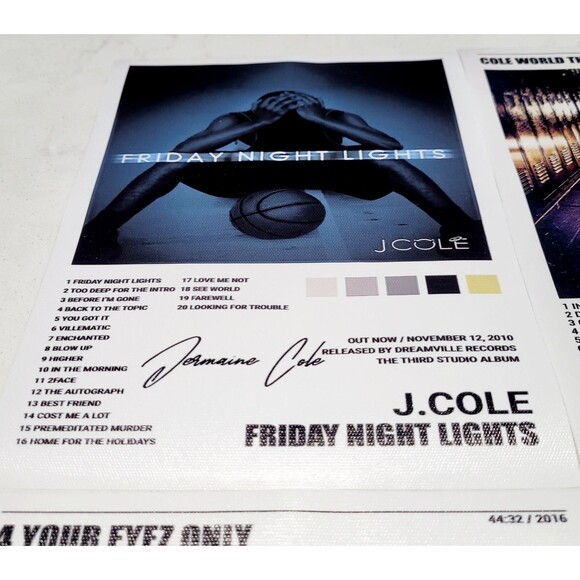 FRIDAY NIGHT LIGHTS
J.COLE
1 FRIDAY NIGHT LIGHTS
2 TOO DEEP FOR THE INTRO
3 BEFORE I'M GONE
4 BACK TO THE TOPIC
5 YOU GOT IT
6 VILLEMATIC
7 ENCHANTED
8 BLOW UP
9 HIGHER
10 IN THE MORNING
11 2FACE
12 THE AUTOGRAPH
13 BEST FRIEND
14 COST ME A LOT
15 PREMEDITATED MURDER
16 HOME FOR THE HOLIDAYS
17 LOVE ME NOT
18 SEE WORLD
19 FAREWELL
20 LOOKING FOR TROUBLE
OUT NOW / NOVEMBER 12, 2010
RELEASED BY DREAMVILLE RECORDS
THE THIRD STUDIO ALBUM
Jermaine Cole
J.COLE
FRIDAY NIGHT LIGHTS
COLE WORLD
4 YOUR EYEZ ONLY
44:32 / 2016